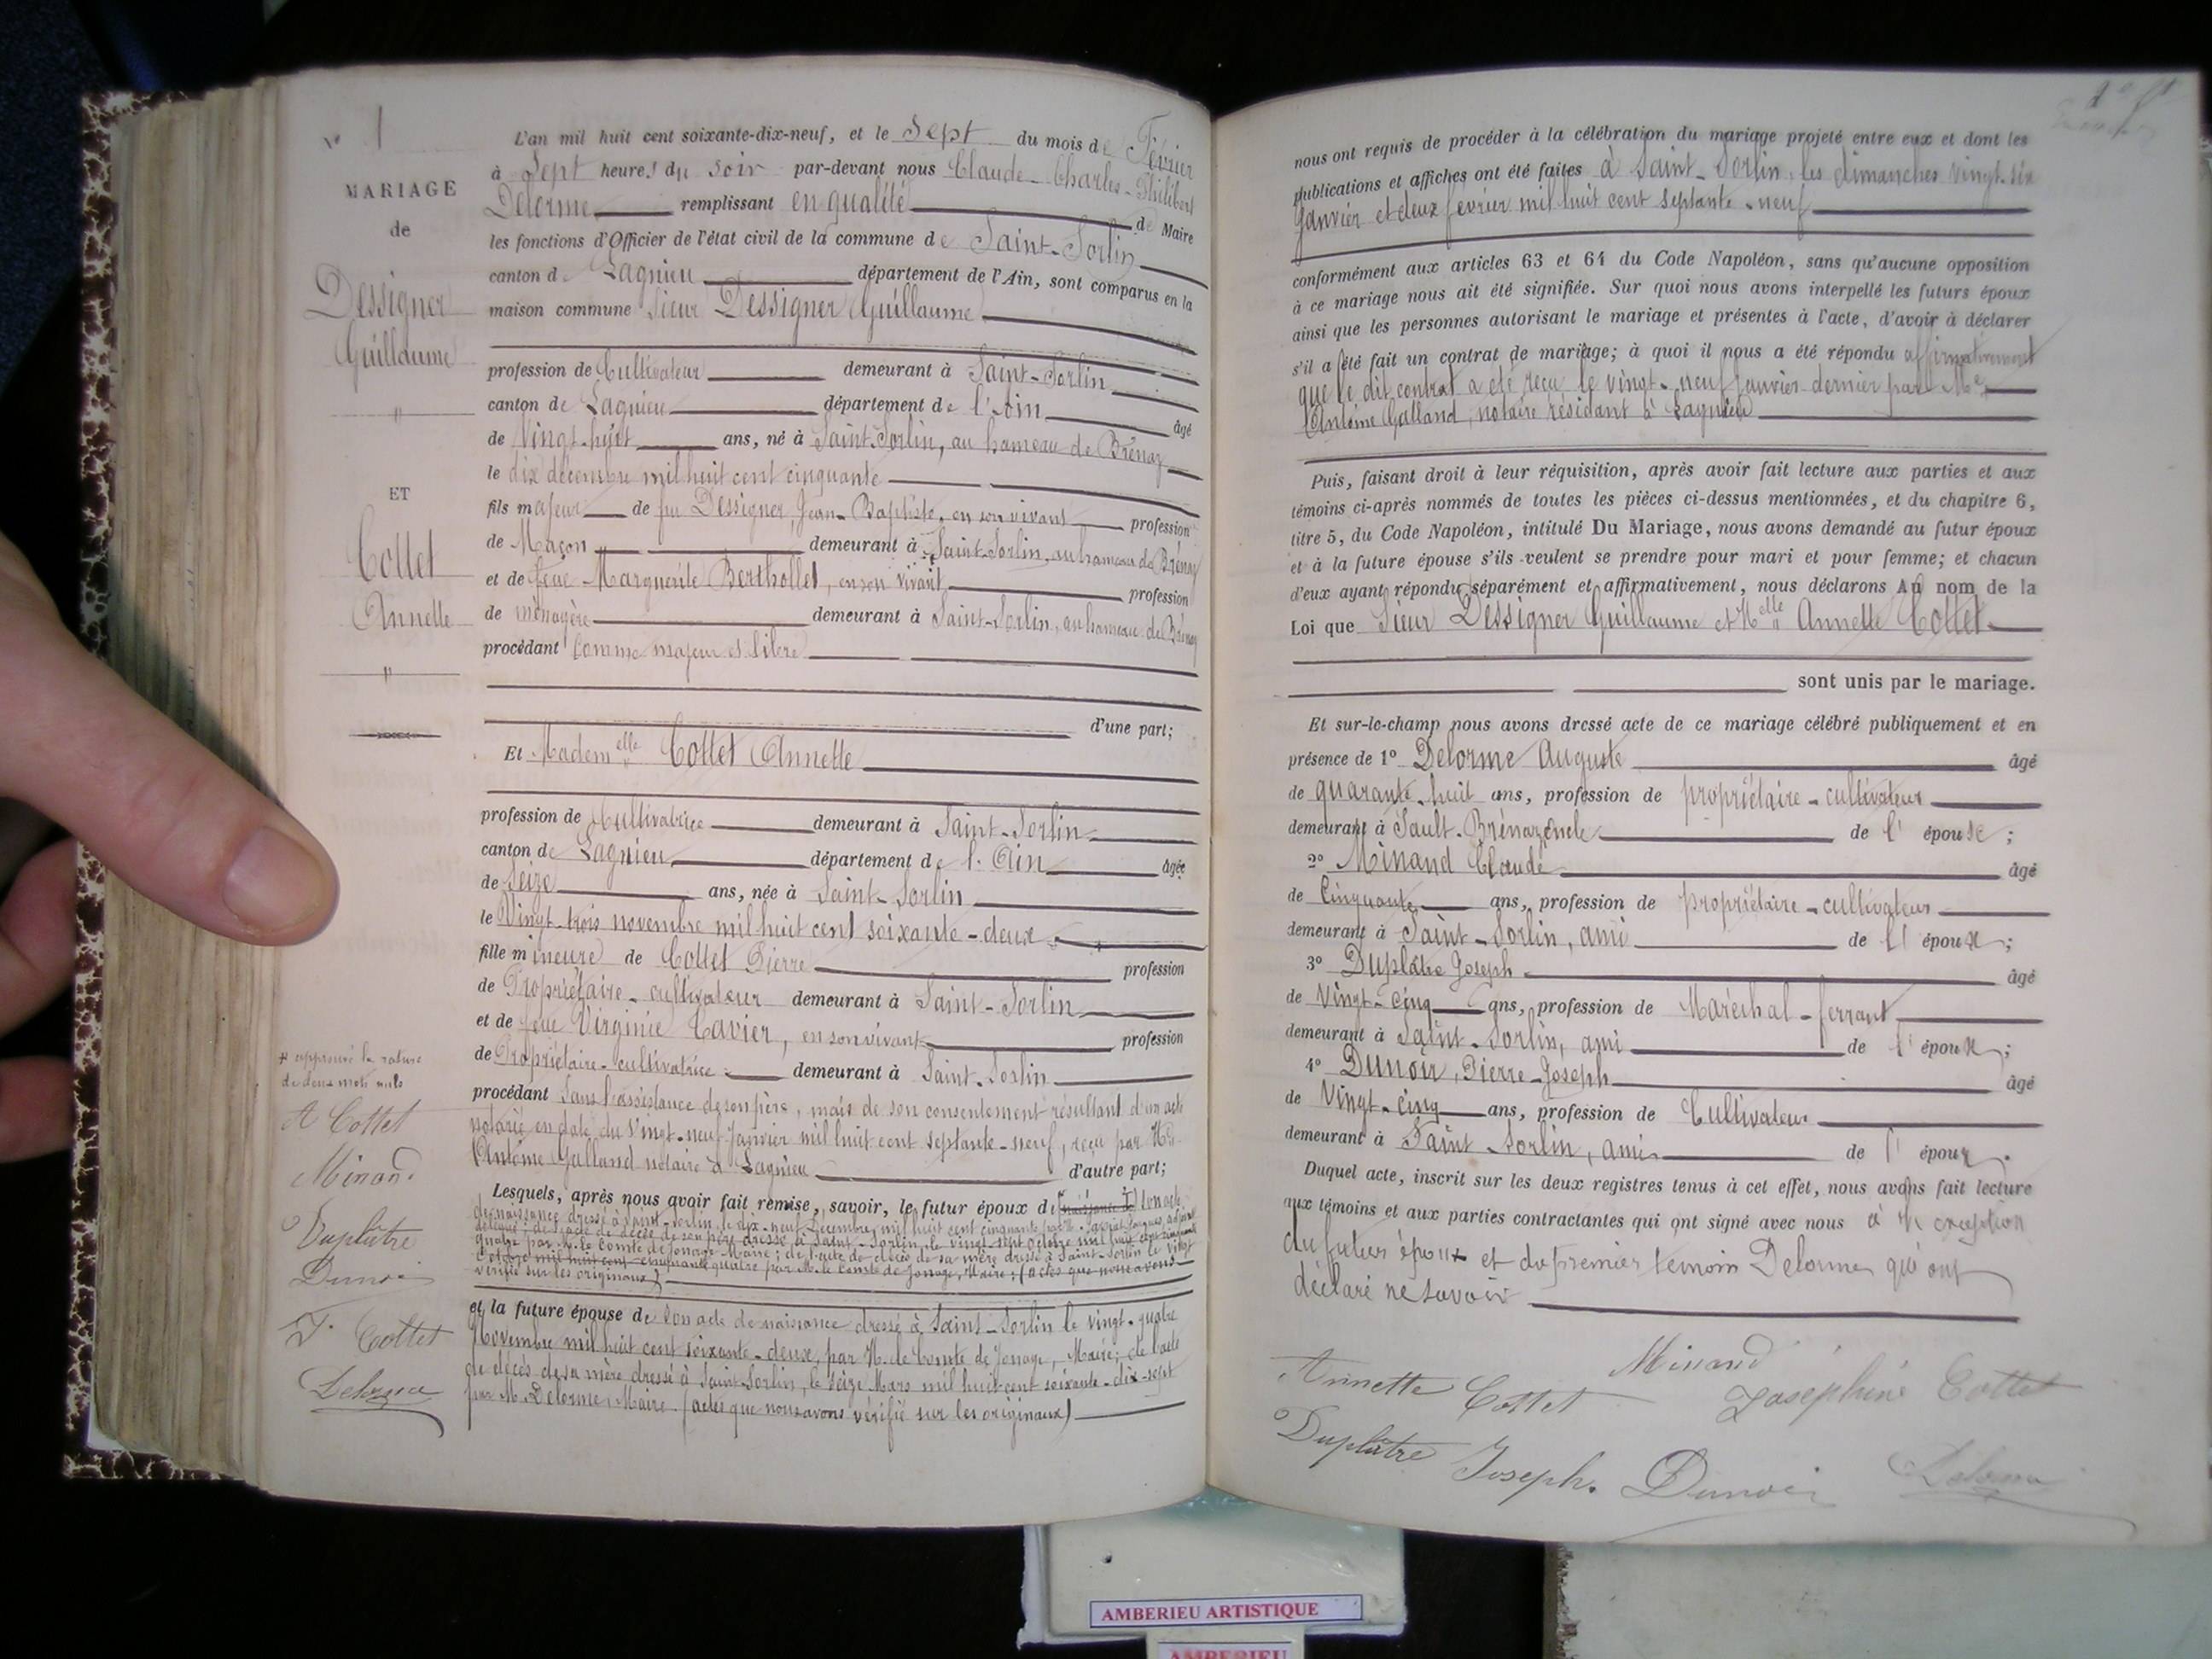 N° 1
MARIAGE
de
Dessigner
Guillaume
"
ET
Collet
Annette
"
+ approuvé la rature
de deux mots nuls
A Cottet
Minand
Duplâtre
Dunoir
J. Cottet
Delorme
L'an mil huit cent soixante-dix-neuf, et le Sept du mois de Février
à Sept heures du soir par-devant nous Claude-Charles-Philibert
Delorme remplissant en qualité de Maire
les fonctions d'Officier de l'état civil de la commune de Saint-Sorlin
canton de Lagnieu département de l'Ain, sont comparus en la
maison commune Sieur Dessigner Guillaume
profession de Cultivateur demeurant à Saint-Sorlin
canton de Lagnieu département de l'Ain âgé
de Vingt-huit ans, né à Saint-Sorlin, au hameau de Brénaz
le dix décembre mil huit cent cinquante
fils majeur de feu Dessigner Jean-Baptiste, en son vivant profession
de Maçon demeurant à Saint-Sorlin, au hameau de Brénaz
et de feue Marguerite Berthollet, en son vivant profession
de ménagère demeurant à Saint-Sorlin, au hameau de Brénaz
procédant comme majeur et libre
d'une part;
Et Madem elle Cottet Annette
profession de Cultivatrice demeurant à Saint-Sorlin
canton de Lagnieu département de l'Ain âgée
de Seize ans, née à Saint-Sorlin
le Vingt-trois novembre mil huit cent soixante-deux
fille mineure de Cottet Pierre profession
de Propriétaire-cultivateur demeurant à Saint-Sorlin
et de feue Virginie Cavier, en son vivant profession
de Propriétaire-cultivatrice demeurant à Saint-Sorlin
procédant sans l'assistance de son père, mais de son consentement résultant d'un acte
notarié en date du vingt-neuf Janvier mil huit cent septante-neuf, reçu par Me
Antoine Galland notaire à Lagnieu d'autre part;
Lesquels, après nous avoir fait remise, savoir, le futur époux de son acte
de naissance dressé à Saint-Sorlin le dix-neuf Décembre mil huit cent cinquante par
délégué; de l'acte de décès de son père dressé à Saint-Sorlin, le vingt-sept octobre mil huit cent cinquante
quatre par M. le Comte de Jonage Maire; de l'acte de décès de sa mère dressé à Saint-Sorlin le vingt
octobre mil huit cent cinquante quatre par M. le Comte de Jonage, Maire; (actes que nous avons
vérifié sur les originaux)
et la future épouse de son acte de naissance dressé à Saint-Sorlin le vingt-quatre
Novembre mil huit cent soixante-deux, par M. le Comte de Jonage, Maire; de l'acte
de décès de sa mère dressé à Saint-Sorlin, le seize Mars mil huit cent soixante-dix-sept
par M. Delorme, Maire (actes que nous avons vérifié sur les originaux)
nous ont requis de procéder à la célébration du mariage projeté entre eux et dont les
publications et affiches ont été faites à Saint-Sorlin, les dimanches vingt-six
Janvier et deux février mil huit cent septante-neuf
conformément aux articles 63 et 64 du Code Napoléon, sans qu'aucune opposition
à ce mariage nous ait été signifiée. Sur quoi nous avons interpellé les futurs époux
ainsi que les personnes autorisant le mariage et présentes à l'acte, d'avoir à déclarer
s'il a été fait un contrat de mariage; à quoi il nous a été répondu affirmativement
que le dit contrat a été reçu le vingt-neuf janvier dernier par Me
Antoine Galland, notaire résidant à Lagnieu
Puis, faisant droit à leur réquisition, après avoir fait lecture aux parties et aux
témoins ci-après nommés de toutes les pièces ci-dessus mentionnées, et du chapitre 6,
titre 5, du Code Napoléon, intitulé Du Mariage, nous avons demandé au futur époux
et à la future épouse s'ils veulent se prendre pour mari et pour femme; et chacun
d'eux ayant répondu séparément et affirmativement, nous déclarons Au nom de la
Loi que Sieur Dessigner Guillaume et Melle Annette Cottet
sont unis par le mariage.
Et sur-le-champ nous avons dressé acte de ce mariage célébré publiquement et en
présence de 1° Delorme Auguste âgé
de quarante-huit ans, profession de propriétaire-cultivateur
demeurant à Sault-Brénaz, oncle de l'épouse;
2° Minand Claude âgé
de Cinquante ans, profession de propriétaire-cultivateur
demeurant à Saint-Sorlin, ami de l'époux;
3° Duplâtre Joseph âgé
de Vingt-cinq ans, profession de Maréchal-ferrant
demeurant à Saint-Sorlin, ami de l'époux;
4° Dunoir, Pierre-Joseph âgé
de Vingt-cinq ans, profession de Cultivateur
demeurant à Saint Sorlin, ami de l'époux.
Duquel acte, inscrit sur les deux registres tenus à cet effet, nous avons fait lecture
aux témoins et aux parties contractantes qui ont signé avec nous à l'exception
du futur époux et du premier témoin Delorme qui ont
déclaré ne savoir
Minand
Annette Cottet Joséphine Cottet
Duplâtre Joseph. Dunoir Delorme
AMBERIEU ARTISTIQUE
AMBERIEU